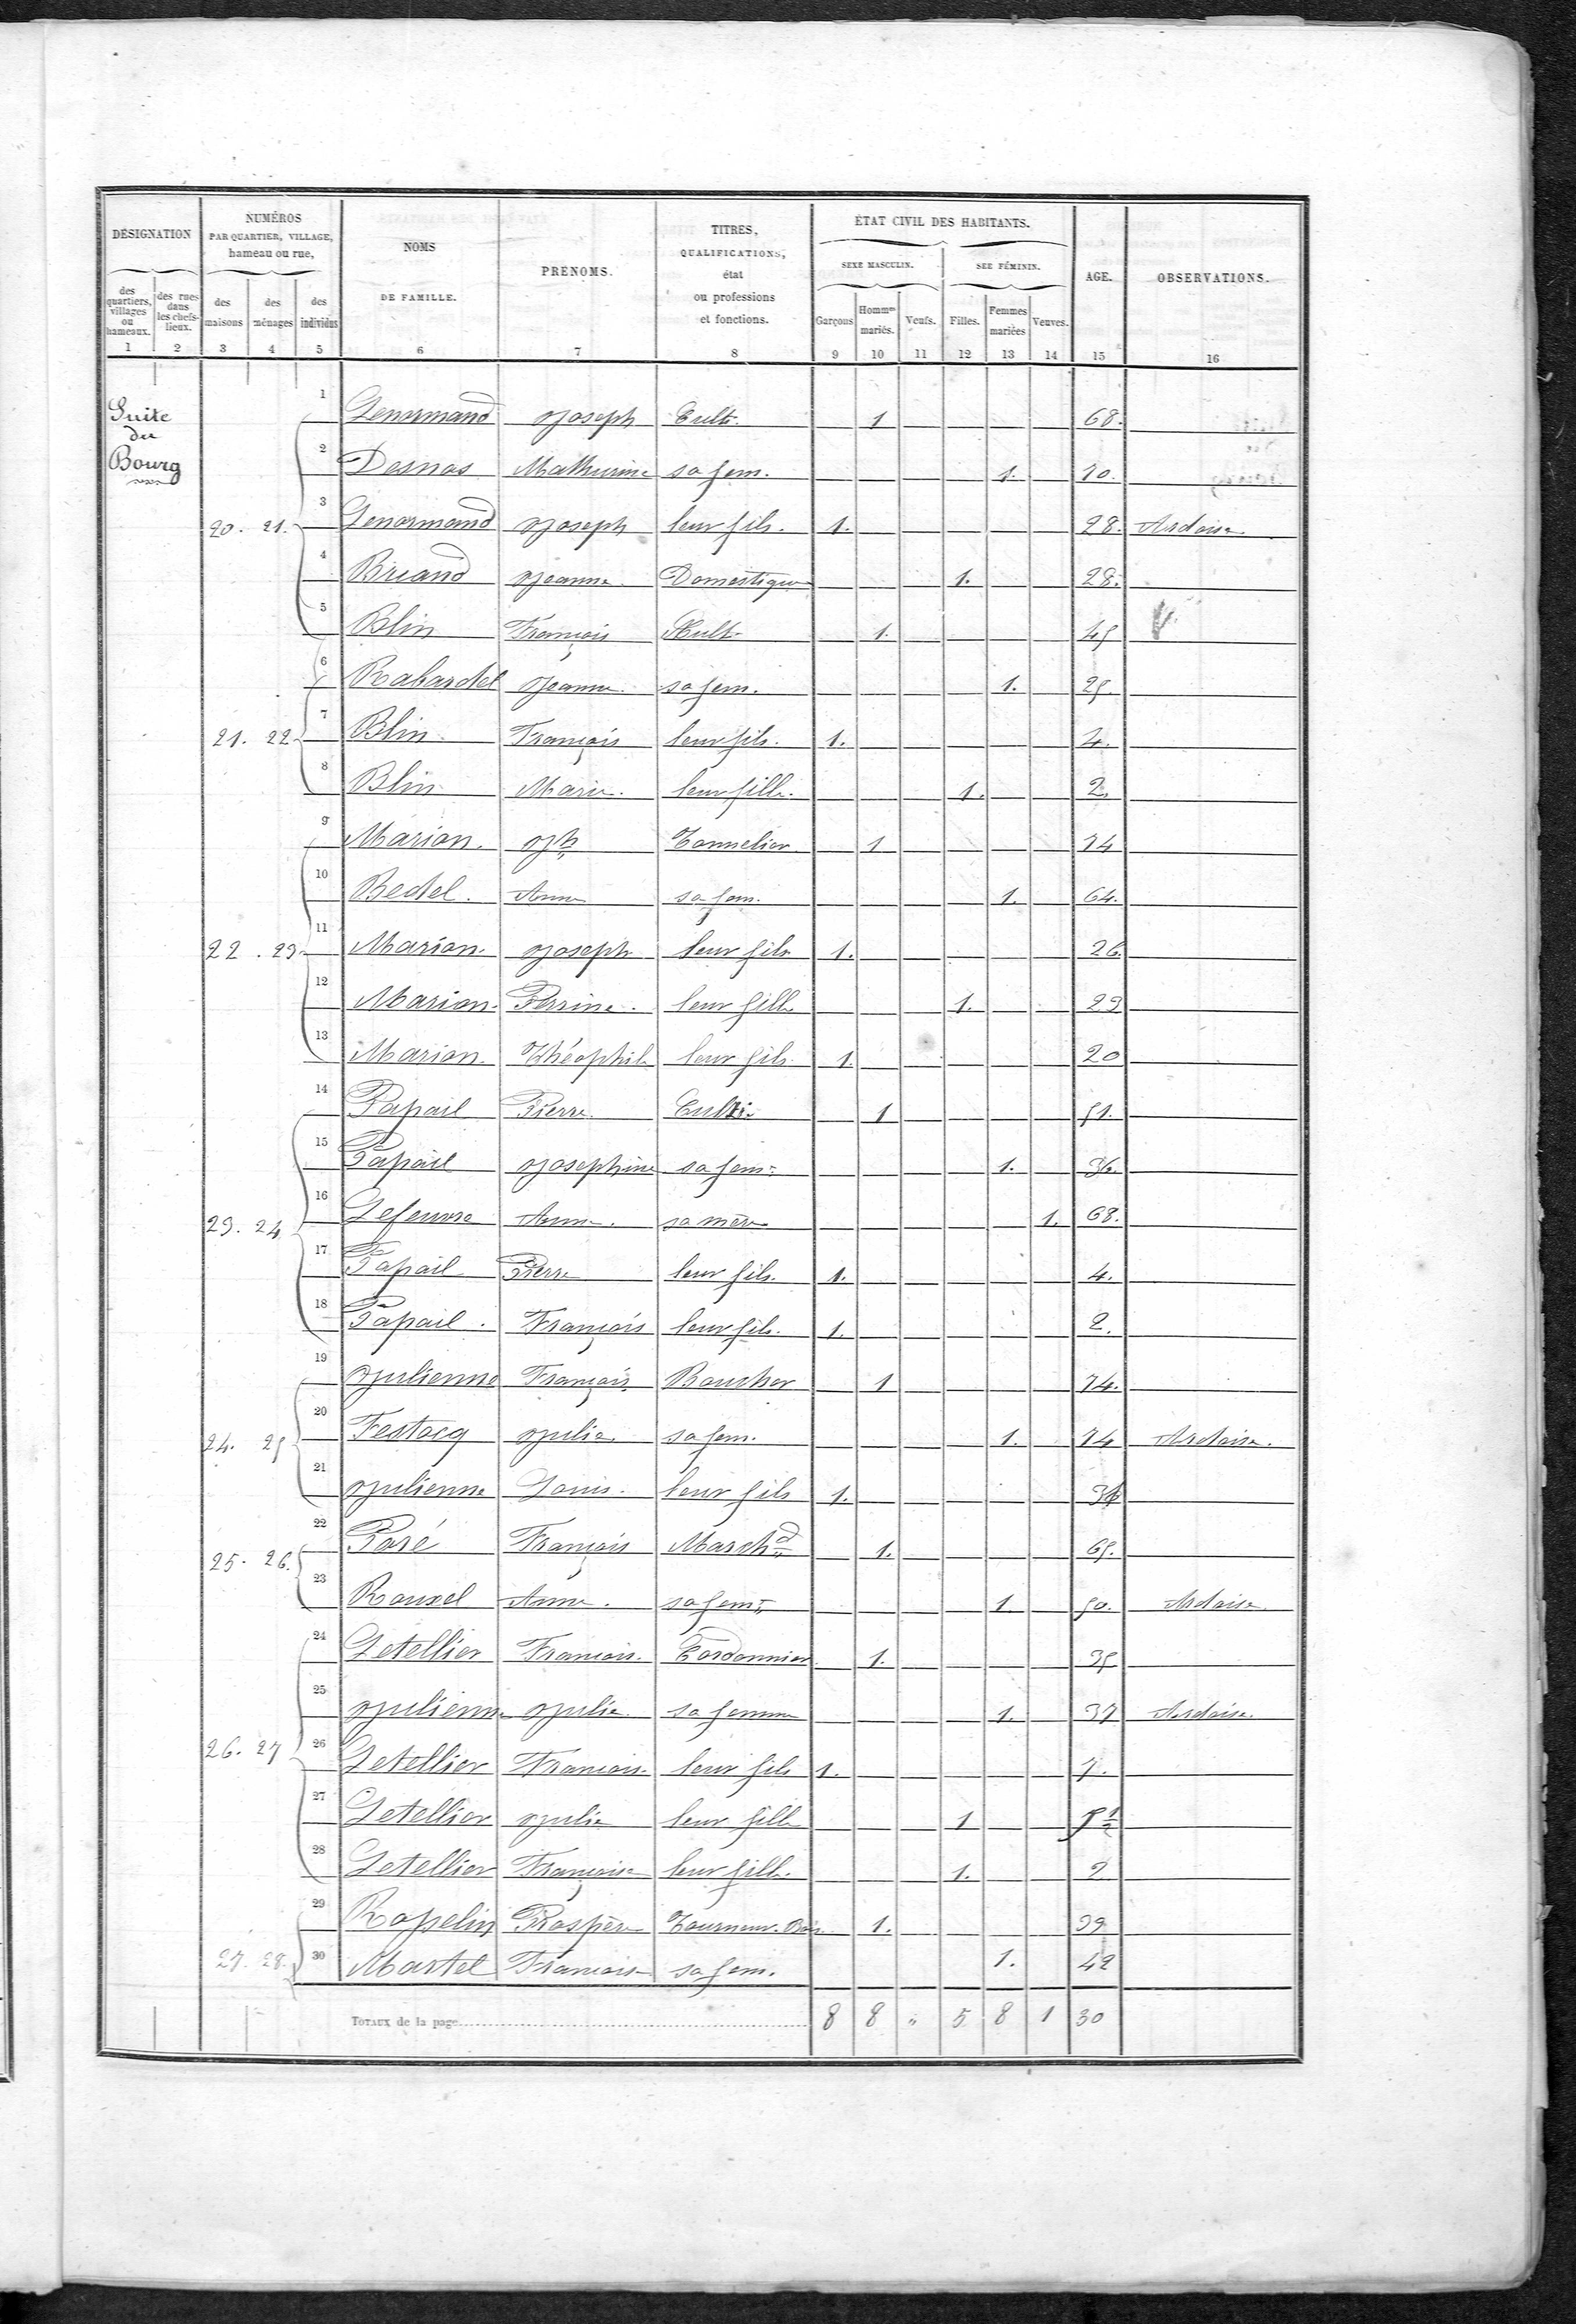 DÉSIGNATION
des quartiers, villages ou hameaux.
des rues dans les chefs-lieux.
NUMÉROS
PAR QUARTIER, VILLAGE,
hameau ou rue,
des maisons
des ménages
des individus
NOMS
DE FAMILLE.
PRÉNOMS.
TITRES,
QUALIFICATIONS,
état
ou professions
et fonctions.
ÉTAT CIVIL DES HABITANTS.
SEXE MASCULIN.
SEE FÉMININ.
Garçons
Hommes mariés.
Veufs.
Filles.
Femmes mariées
Veuves.
AGE.
OBSERVATIONS.
1 2 3 4 5 6 7 8 9 10 11 12 13 14 15 16
Suite
du
Bourg
1 Lenormand Joseph Cult. 1 68.
2 Desnos Mathurine sa fem. 1. 70.
20. 21. 3 Lenormand Joseph leur fils. 1. 28. Ardoise
4 Briand Jeanne Domestique 1. 28.
5 Blin François Cult. 1. 45
6 Rabardel Jeanne sa fem. 1. 25.
21. 22 7 Blin François leur fils. 1. 4.
8 Blin Marie. leur fille. 1. 2.
9 Marion. Jh Tonnelier 1 74
10 Bedel. Anne sa fem. 1. 64.
22. 23 11 Marion. Joseph leur fils 1. 26.
12 Marion. Perrine. leur fille 1. 23
13 Marion. Théophile leur fils. 1. 20
14 Papail Pierre Culti. 1 51.
15 Papail Josephine sa fem. 1. 36.
23. 24 16 Lefeuvre Anne. sa mère 1. 68.
17 Papail Pierre leur fils. 1. 4.
18 Papail. François leur fils. 1. 2.
19 Julienne François Boucher 1 74.
24. 25 20 Festocq Julie sa fem. 1. 74 Ardoise.
21 Julienne Louis. leur fils 1.
25. 26. 22 Paré François Marchd 1. 65.
23 Rouxel Anne. sa fem. 1. 50. Ardoise.
24 Letellier François. Cordonnier 1. 35
25 Julienne Julie sa femme 1. 37 Ardoise.
26. 27 26 Letellier François leur fils 1. 7.
27 Letellier Julie leur fille 1 5 1/2
28 Letellier Françoise leur fille. 1. 2
29 Ropelin Prospère Tourneur. Bois 1. 39
27. 28. 30 Martel Françoise sa fem. 1. 42
TOTAUX de la page 8 8 " 5 8 1 30